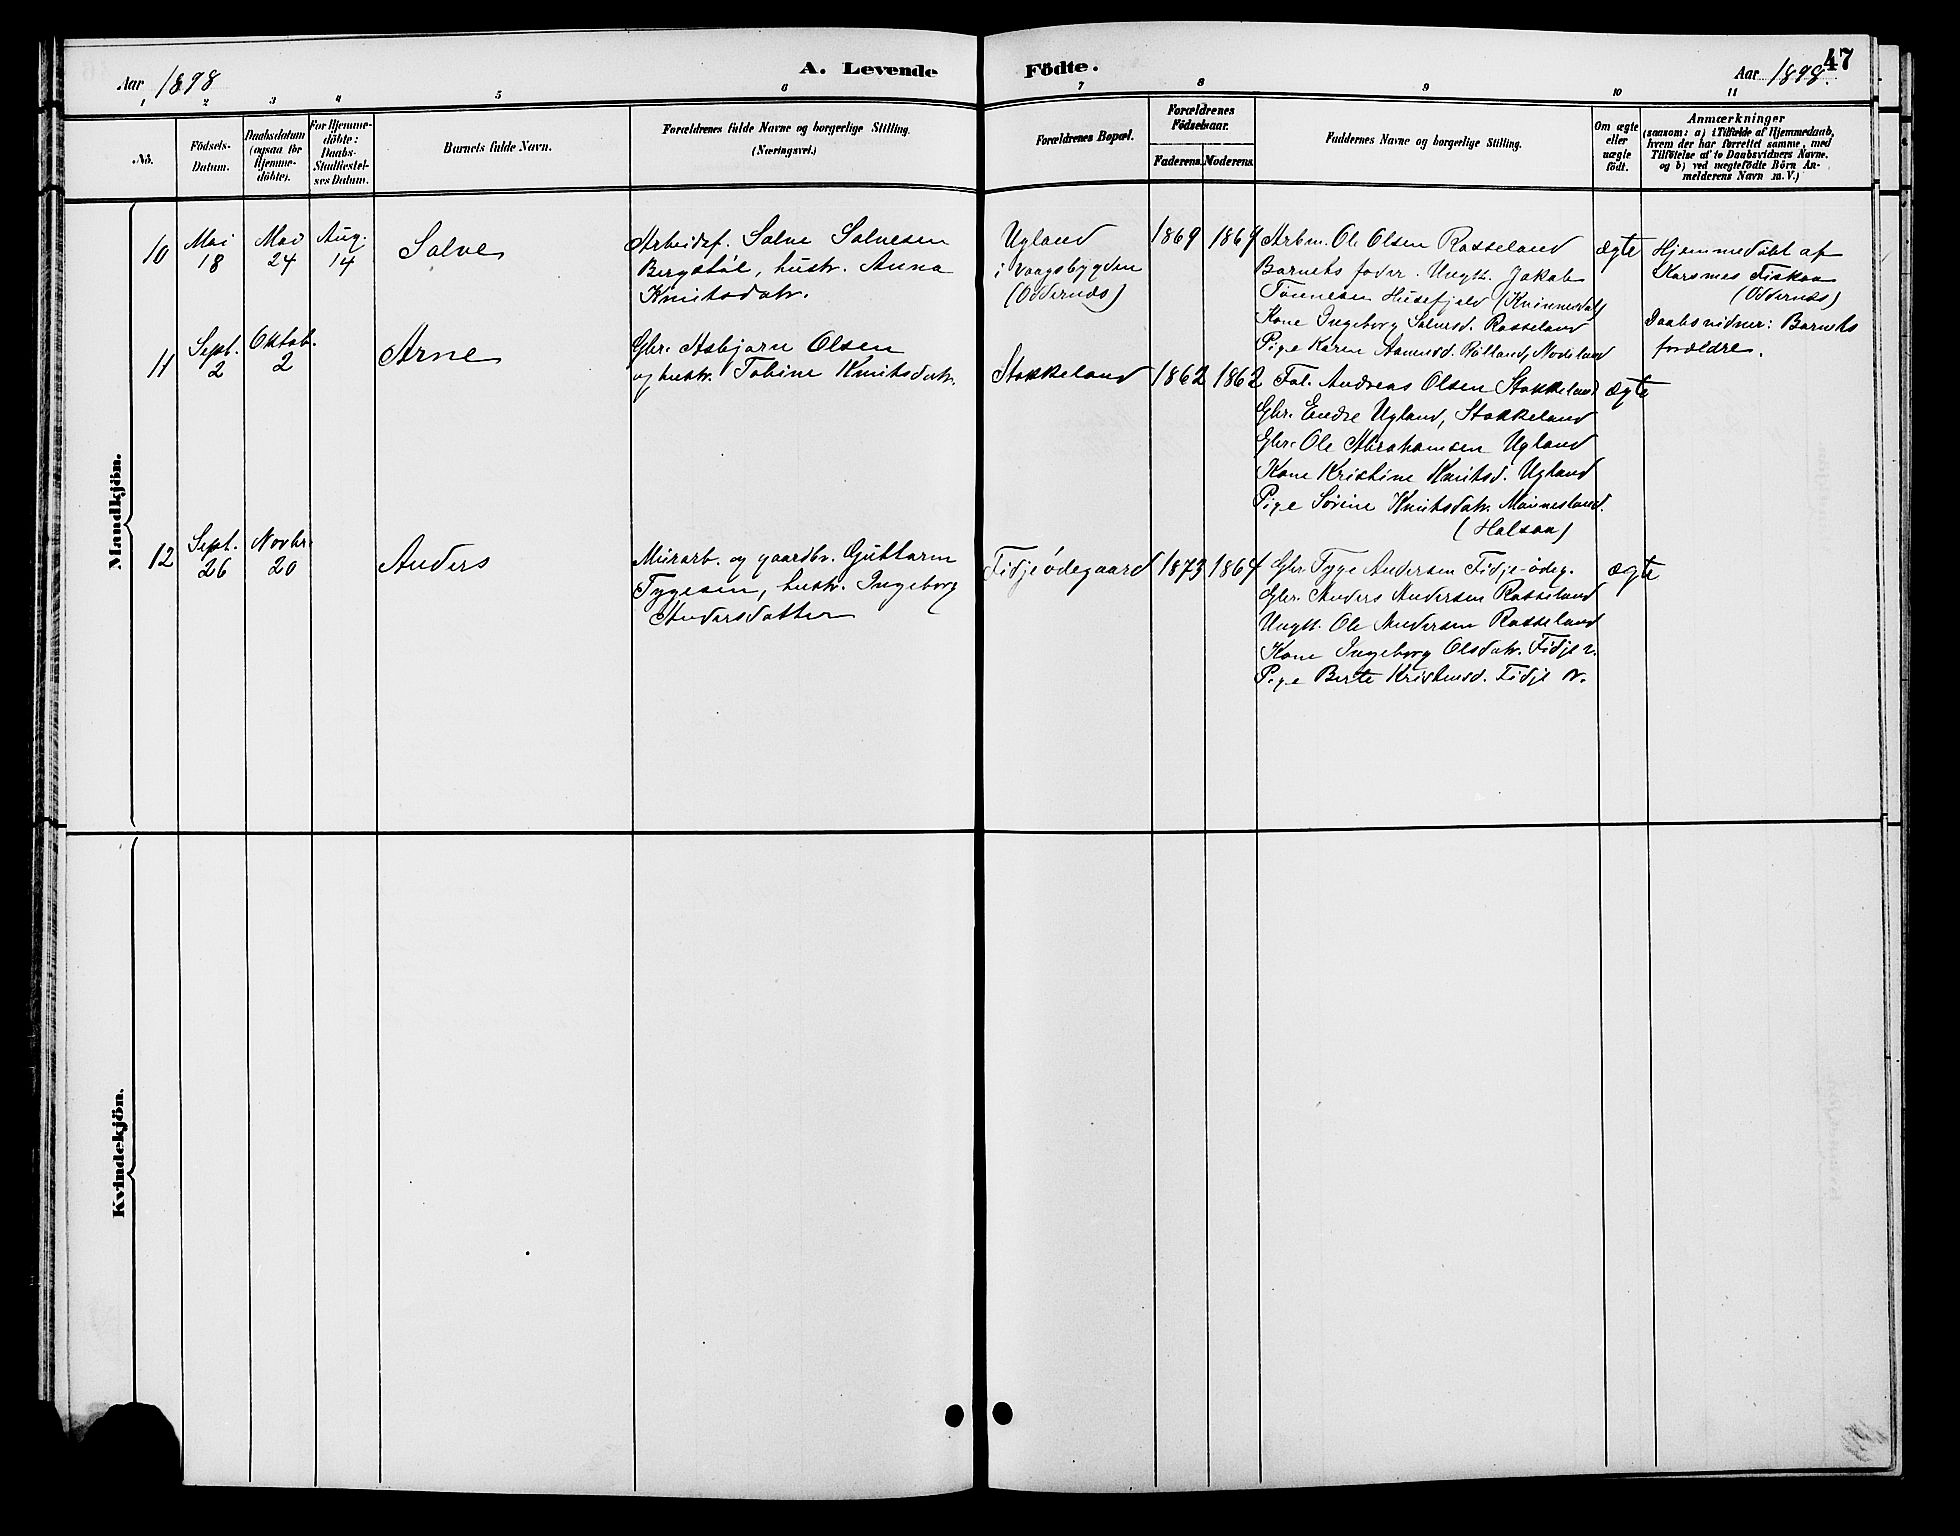 Aar 1898
A. Levende Födte.
Aar 1898.
47
1 2 3 4 5 6 7 8 9 10 11
No.
Födsels-
Datum.
Daabsdatum
(ogsaa for
Hjemme-
döbte).
For Hjemme-
döbte:
Daabs-
Stadfæstel-
ses Datum.
Barnets fulde Navn.
Forældrenes fulde Navne og borgerlige Stilling.
(Næringsvei.)
Forældrenes Bopæl.
Forældrenes
Födselsaar.
Faderens. Moderens.
Faddernes Navne og borgerlige Stilling.
Om ægte
eller
uægte
født.
Anmærkninger
(saasom: a) i Tilfælde af Hjemmedaab,
hvem der har forrettet samme, med
Tilföielse af to Daabsvidners Navne.
og b) ved uægtefödte Börn An-
melderens Navn m. V.)
Mandkjön.
10
Mai
18
Mai
24
Aug.
14
Salve
Arbeidsf. Salve Salvesen
Bergstøl, hustr. Anna
Knutsdatr.
Ugland
i Vaagsbygden
(Oddernes)
1869
1869
Arbm. Ole Olsen Rosseland
Barnets fader. Ungk. Jakob
Tønnesen Husefjeld (Kvinnesdal)
Kone Ingeborg Salvesd. Rosseland
Pige Karen Aanensd. Rølland, Nodeland
ægte
Hjemmedøbt af
Karsmes Fiskaa
(Oddernes)
Daabsvidner: Barnets
forældre.
11
Sept.
2
Oktob.
2
Arne
Gbr. Asbjørn Olsen
og hustr. Tobine Knutsdatr.
Stokkeland
1862
1862
Fol. Andreas Olsen Stokkeland
Gbr. Endre Ugland, Stokkeland
Gbr. Ole Abrahamsen Ugland
Kone Kristine Knutsd. Ugland
Pige Sørine Knutsdatr. Mannesland.
(Halsaa)
ægte
12
Sept.
26
Novbr.
20
Anders
Murarb. og gaardbr. Guttorm
Tygesen, hustr. Ingeborg
Andersdatter
Fidje ødegaard
1873
1864
Gbr. Tyge Andersen Fidje-ødeg.
Gbr. Anders Andersen Rosseland
Ungk. Ole Andersen Rosseland
Kone Ingeborg Olsdatr. Fidje
Pige Berte Kristensd. Fidje
ægte
Kvindekjön.